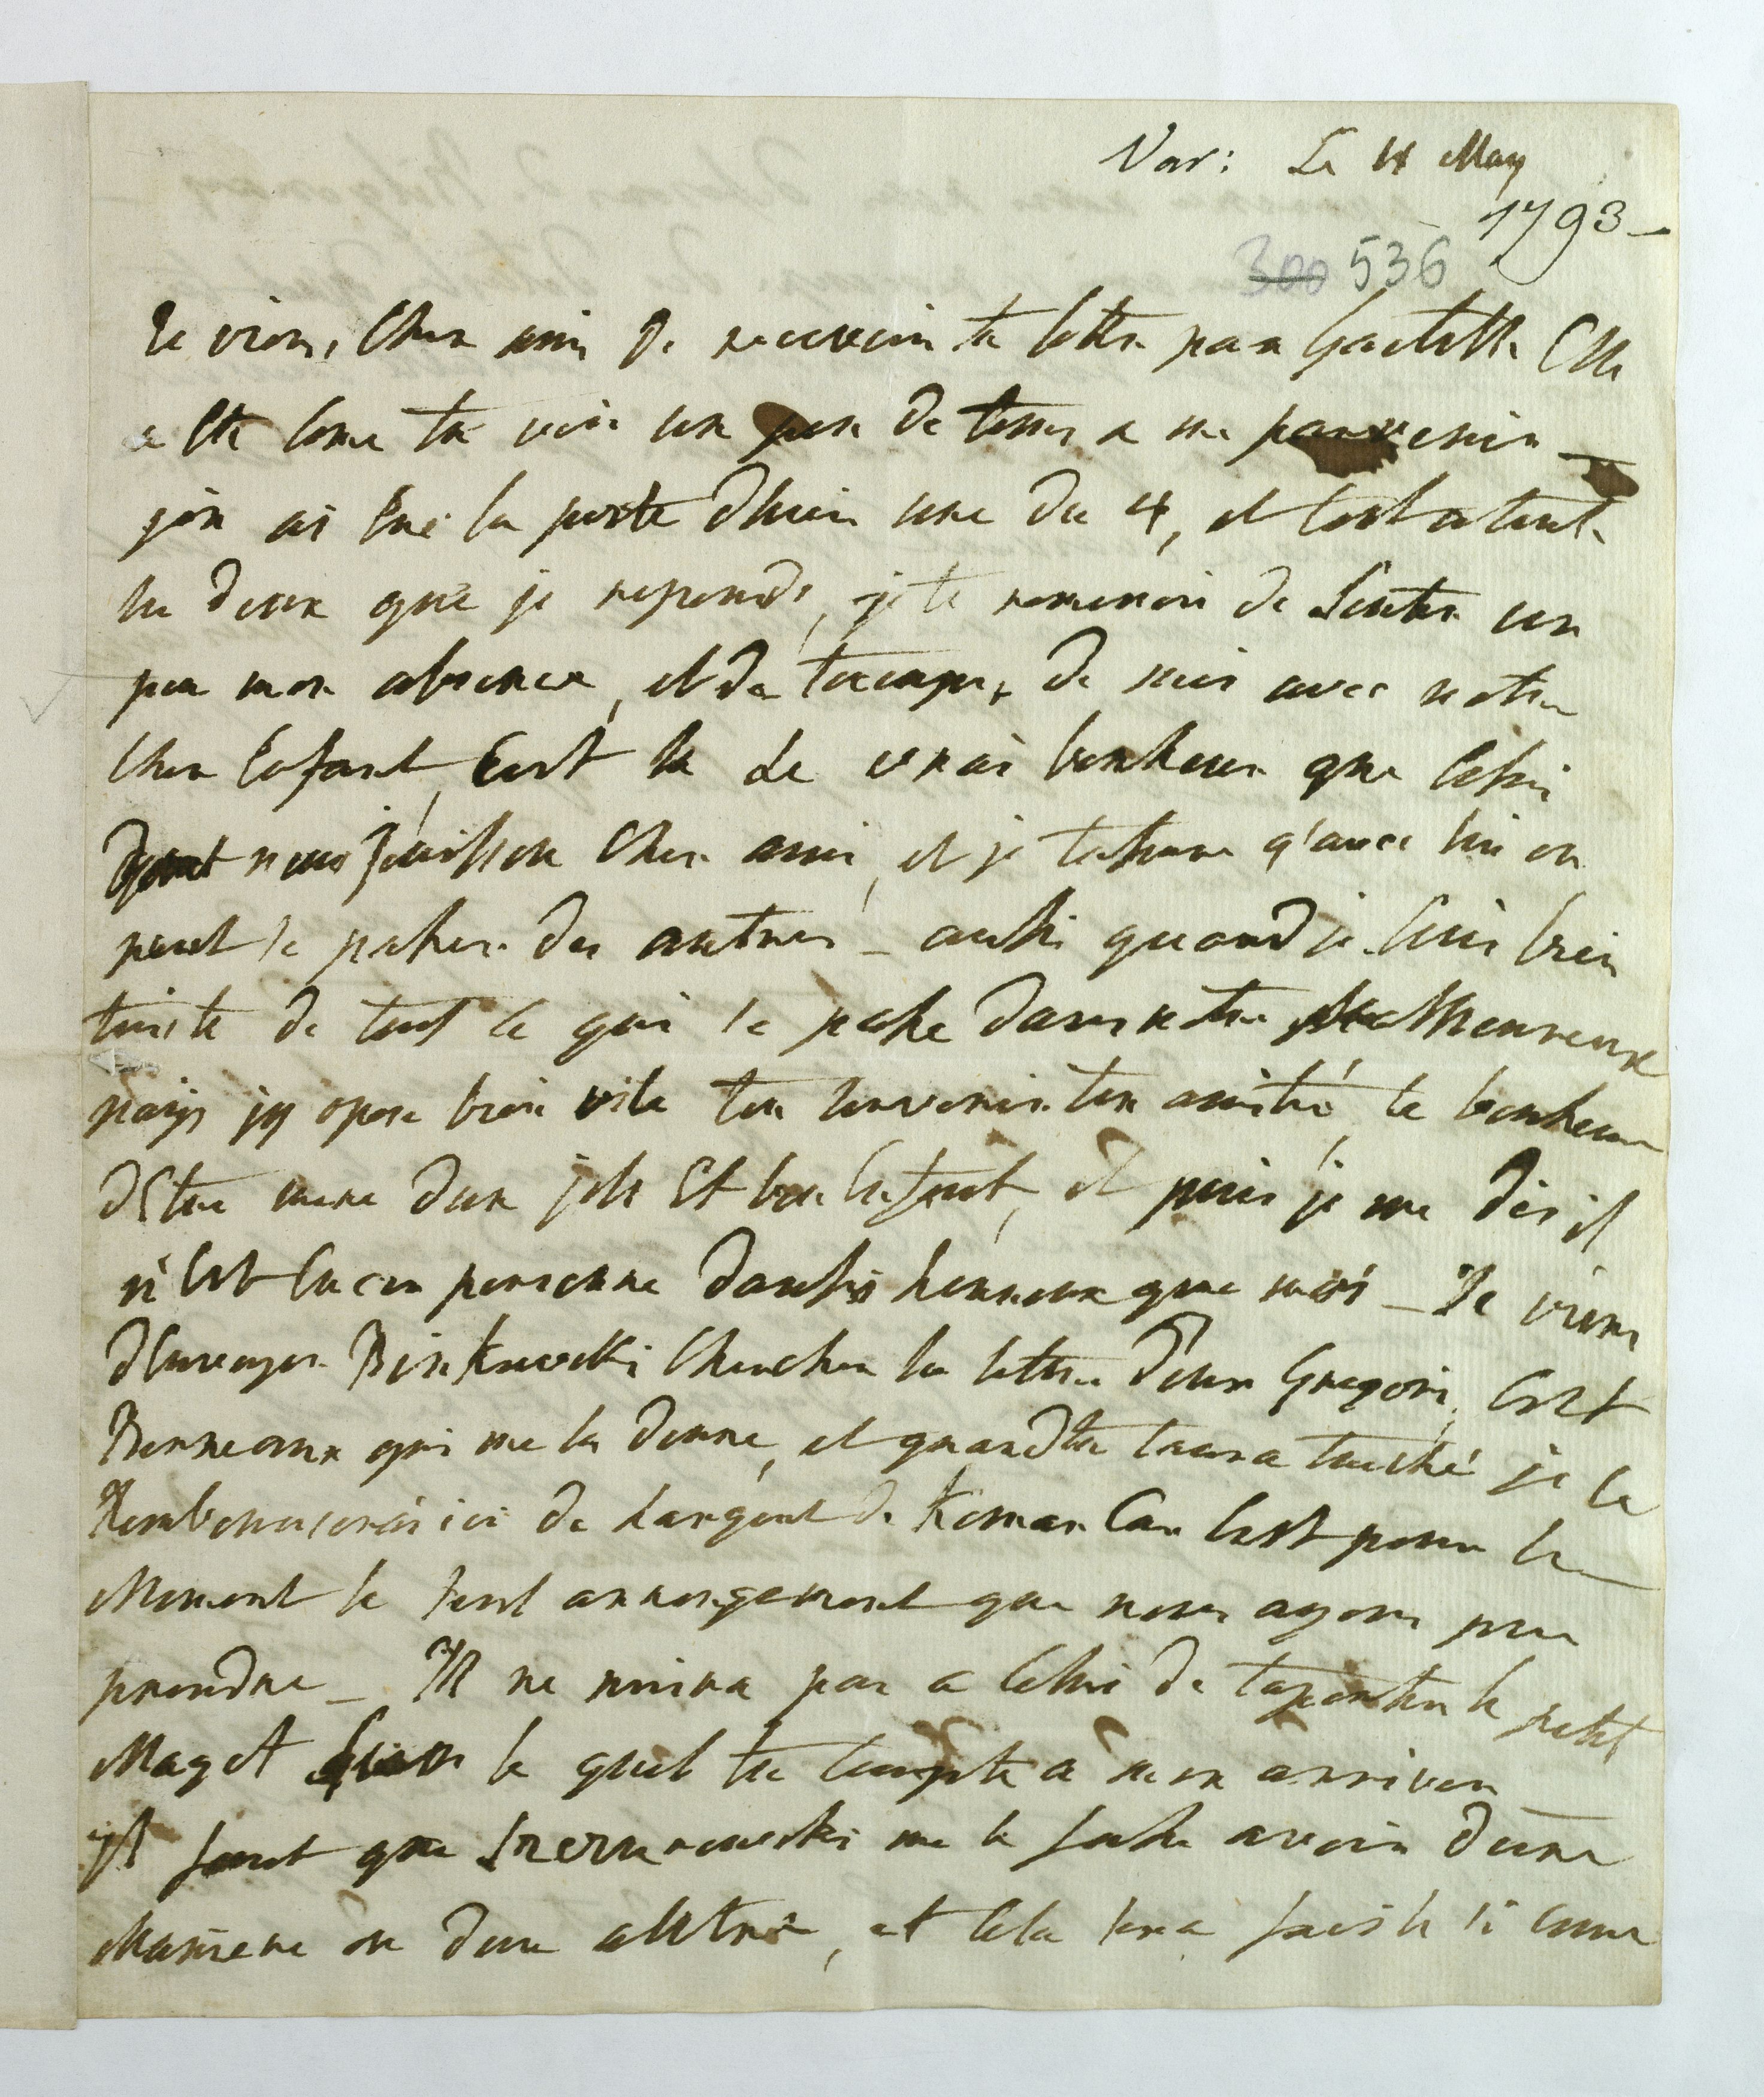 Var: Le 11 May
1793 –
300 536
Je viens, Cher ami de recevoir ta lettre par Gactelle Elle
a Eté Come tu vois un peu de tems a me parvenir –
jen ai Eue la poste dhier une du 4, et Cest a toute
les deux que je reponds, je te remerci de Sentir un
peu mon absence, et de tocuper de moi avec notre
Cher Enfant, Cest la Le vrai bonheur que Celui
dont nous jouissons Cher ami, et je tassure q'avec lui on
peut se passer des autres – aussi quand je Suis bien
triste de tout Ce qui se passe dans notre Malheureux
pays jy opose bien vite ton Souvenir ton amitié, le bonheur
dEtre mere dun joli Et bon Enfant, et puis je me dis il
n'Est Encor personne daussi heureux que moi – Je viens
dEnvoyer Binkowski Chercher la lettre deux Gregori, Cest
Berneaux qui me la donne, et quand tu laura touché je le
Rembourserai ici de largent de Komar Car Cest pour le
Moment le seul arrengement que nous ayons pu
prendre – Il ne nuira pas a Celui de taporter le petit
Magot Sur le quel tu Compte a mon arriver
Il faut que Szczurowski me le fasse avoir dune
Maniere ou dun autre, et Cela sera facile si Come